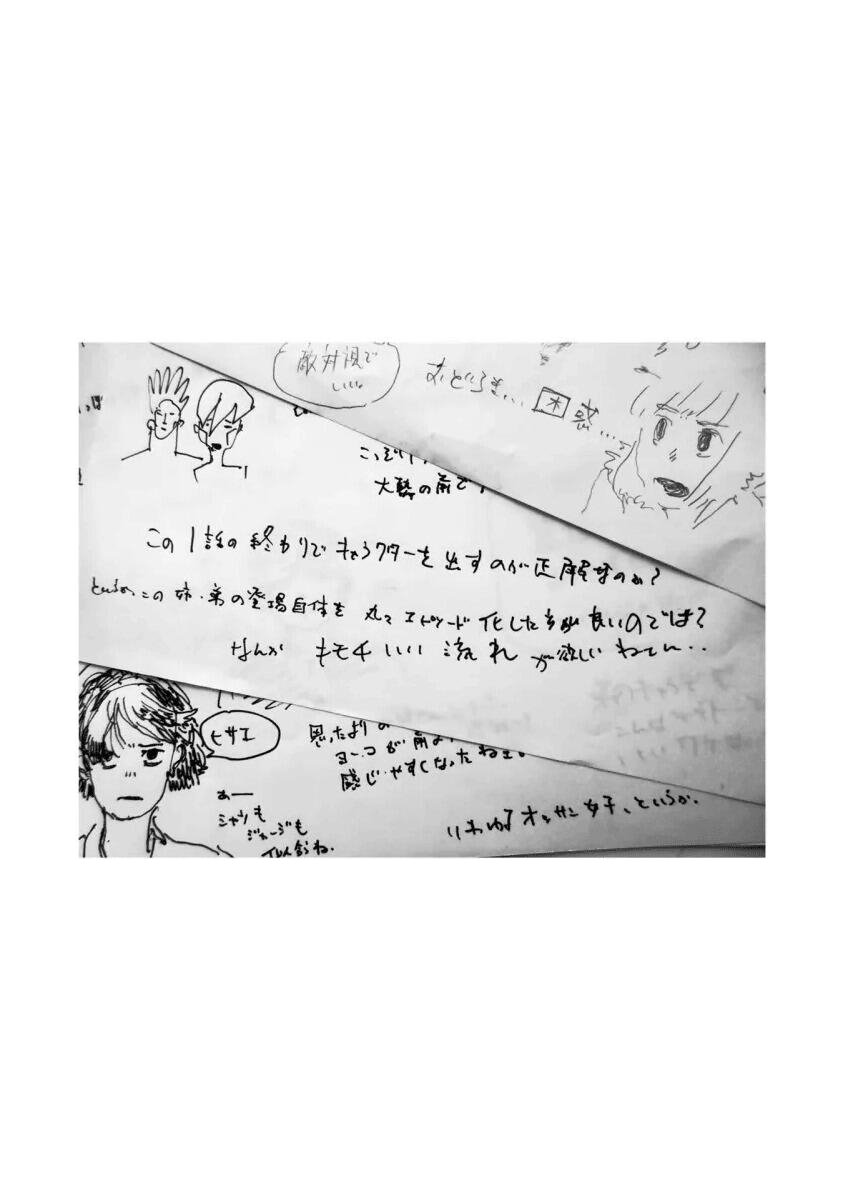 敵対視で
いいね
おどろき…困惑…
っぱ
大勢の前で
この1話の終わりでキャラクターを出すのが正解なのか？
というか、この姉・弟の登場自体を丸々エピソード化した方が良いのでは？
なんかキモチいい流れが欲しいねてん..
ヒサエ
思ったより
ヨーコが前よ
感じやすくなったねぇ。
あー
シャツも
ジャージも
似合うね.
いわゆるオッサン女子、というか.